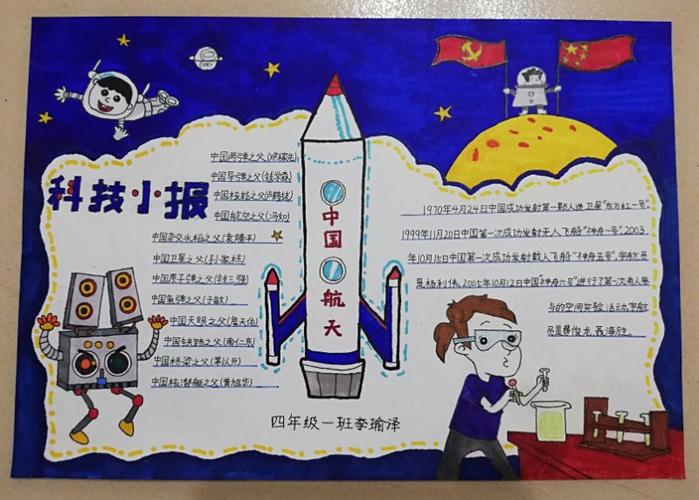 科技小报
中国两弹之父(邓稼先)
中国导弹之父(钱学森)
中国核能之父(卢鹤绂)
中国航空之父(冯如)
中国杂交水稻之父(袁隆平)
中国卫星之父(孙家栋)
中国原子弹之父(钱三强)
中国氢弹之父(于敏)
中国天眼之父(詹天佑)
中国铁路之父(南仁东)
中国桥梁之父(茅以升)
中国核潜艇之父(黄旭华)
中国航天
1970年4月24日中国成功发射第一颗人造卫星"东方红一号".
1999年11月20日中国第一次成功发射无人飞船"神舟一号".2003
年10月15日中国第一次成功发射载人飞船"神舟五号".宇航员
是杨利伟.2005年10月12日中国"神舟六号"进行了第一次有人参
与的空间实验活动.宇航
员是费俊龙.聂海胜.
四年级一班李瑜泽